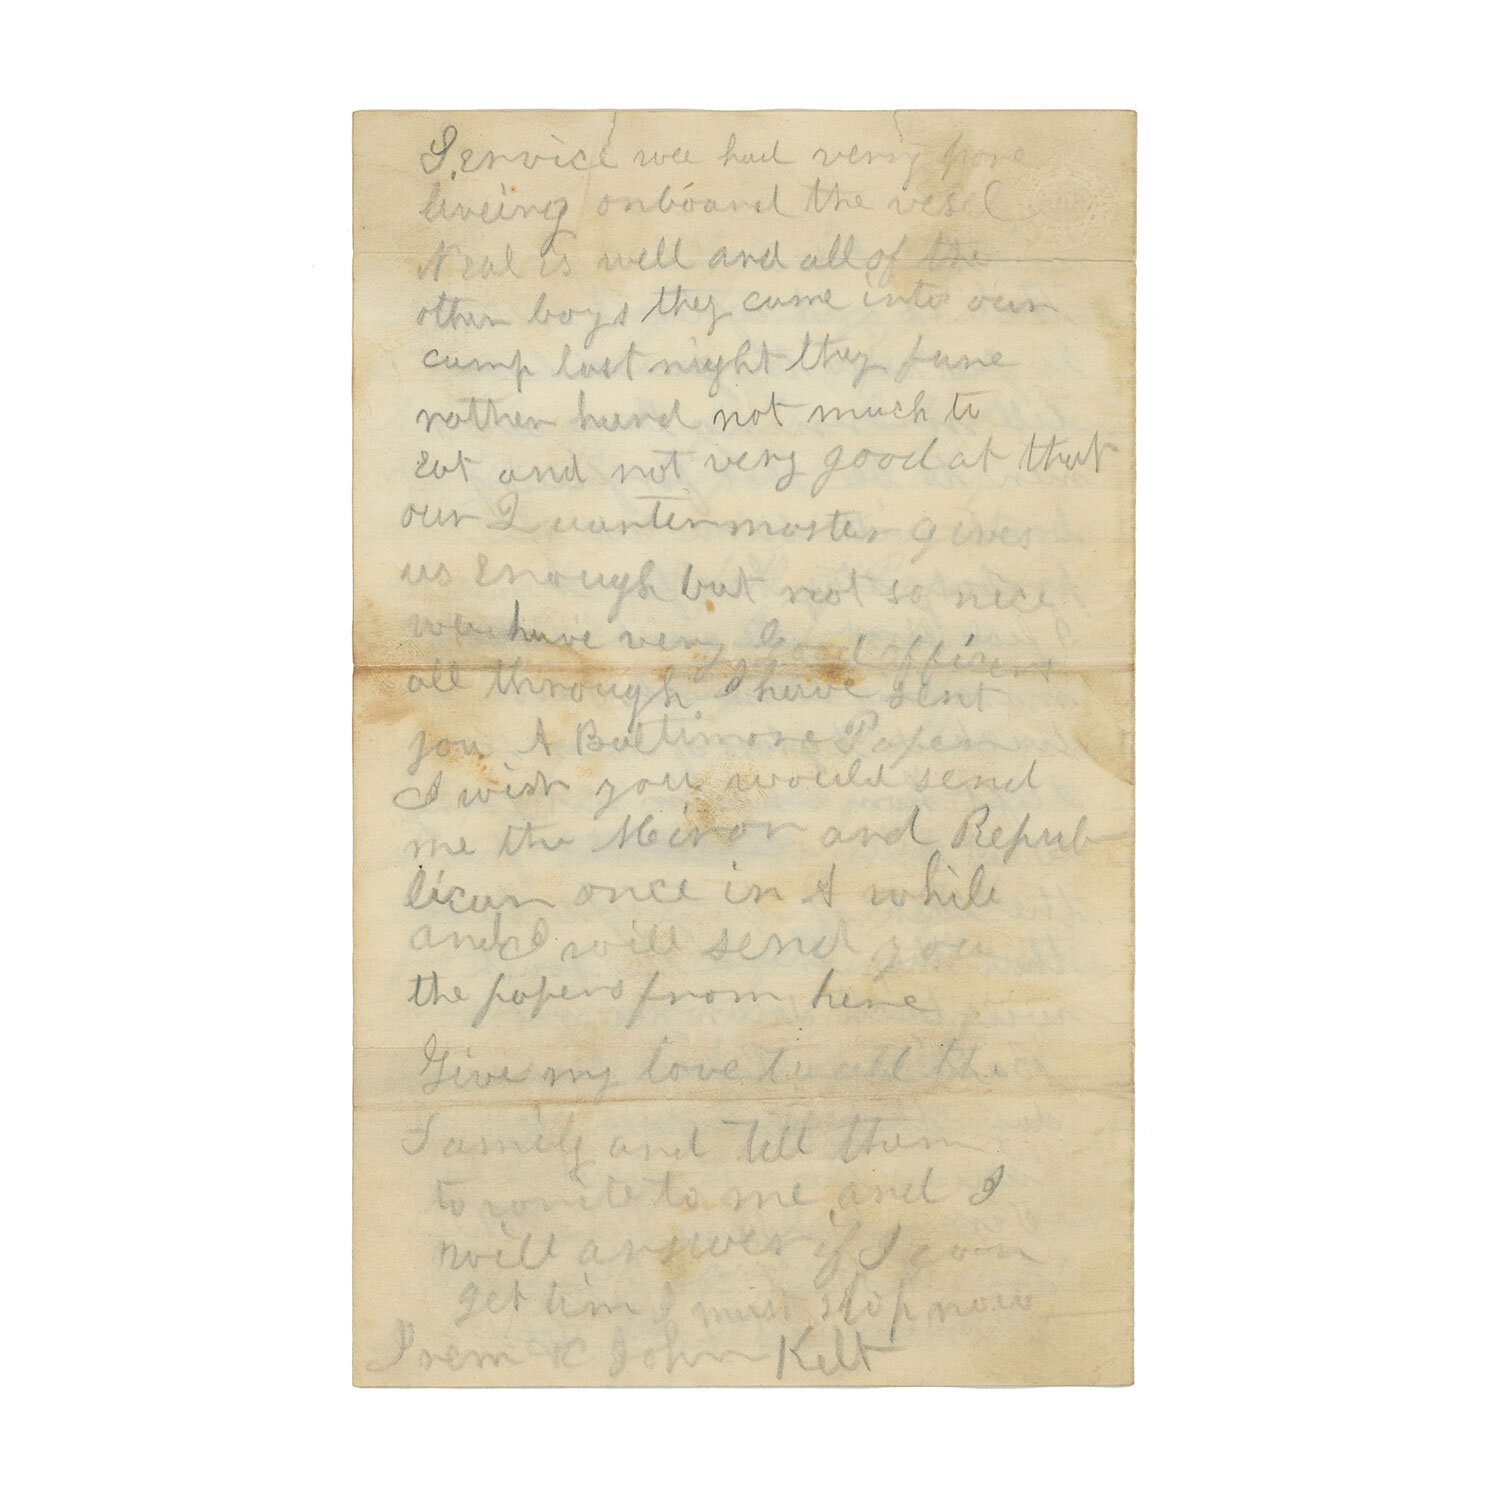 Service wee had very pore
liveing onboard the vesel
Neal is well and all of the
other boys they came into our
camp last night they fare
rather hard not much to
Eat and not very good at that
our Quartermaster gives
us Enough but not so nice
wee have very Good officers
all through I have sent
you A Baltimore Paper
I wish you would send
me the Miror and Repub
lican once in A while
and I will send you
the papers from here
Give my love to all the
Family and Tell them
to write to me and I
will answer if I can
get tim I must stop now
John Kelt